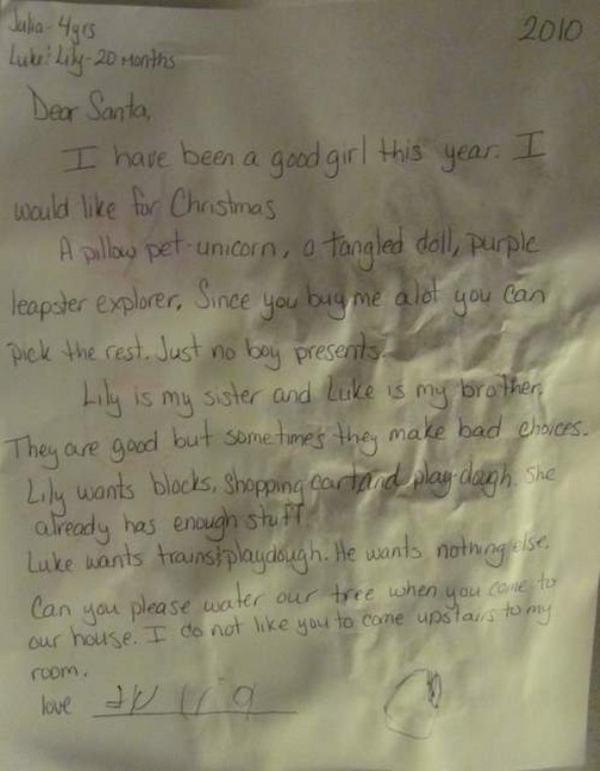 Julia-4yrs
2010
Luke & Lily-20 Months
Dear Santa,
I have been a good girl this year. I
would like for Christmas
A pillow pet-unicorn, a tangled doll, purple
leapster explorer. Since you buy me alot you can
pick the rest. Just no boy presents.
Lily is my sister and Luke is my brother.
They are good but sometimes they make bad choices.
Lily wants blocks, shopping cart and play-dough. She
already has enough stuff.
Luke wants trains & playdough. He wants nothing else.
Can you please water our tree when you come to
our house. I do not like you to come upstairs to my
room.
love